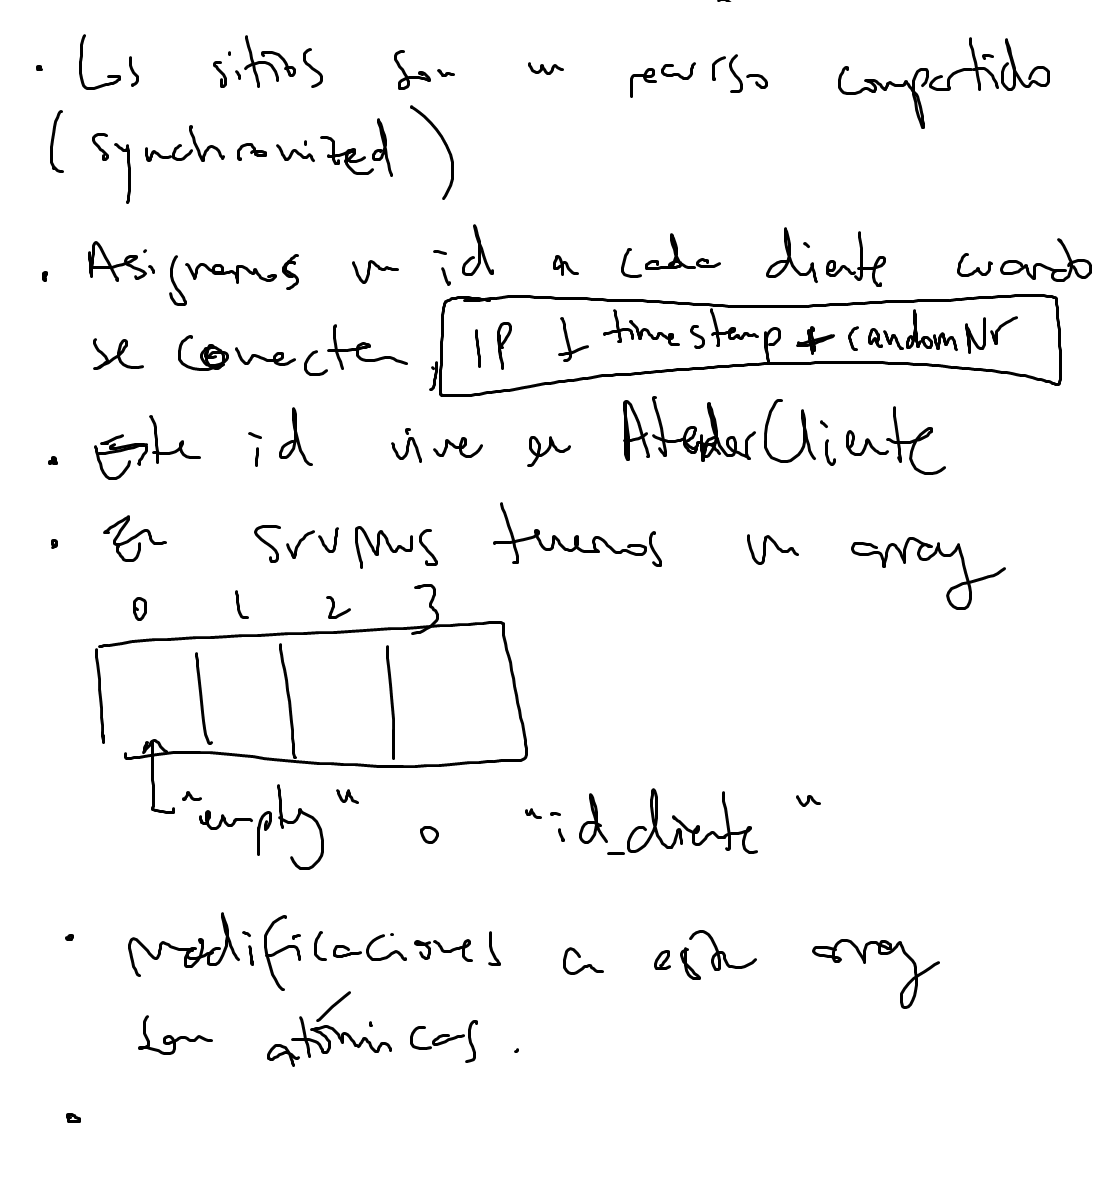 · Los sitios son un recurso compartido
(synchronized)
· Asignamos un id a cada cliente cuando
se conecten, IP + timestamp + randomNr
· Este id vive en AtenderCliente
· En srvMus tenemos un array
0 1 2 3
"empty" o "id_cliente"
· modificaciones a este array
son atómicas.
·